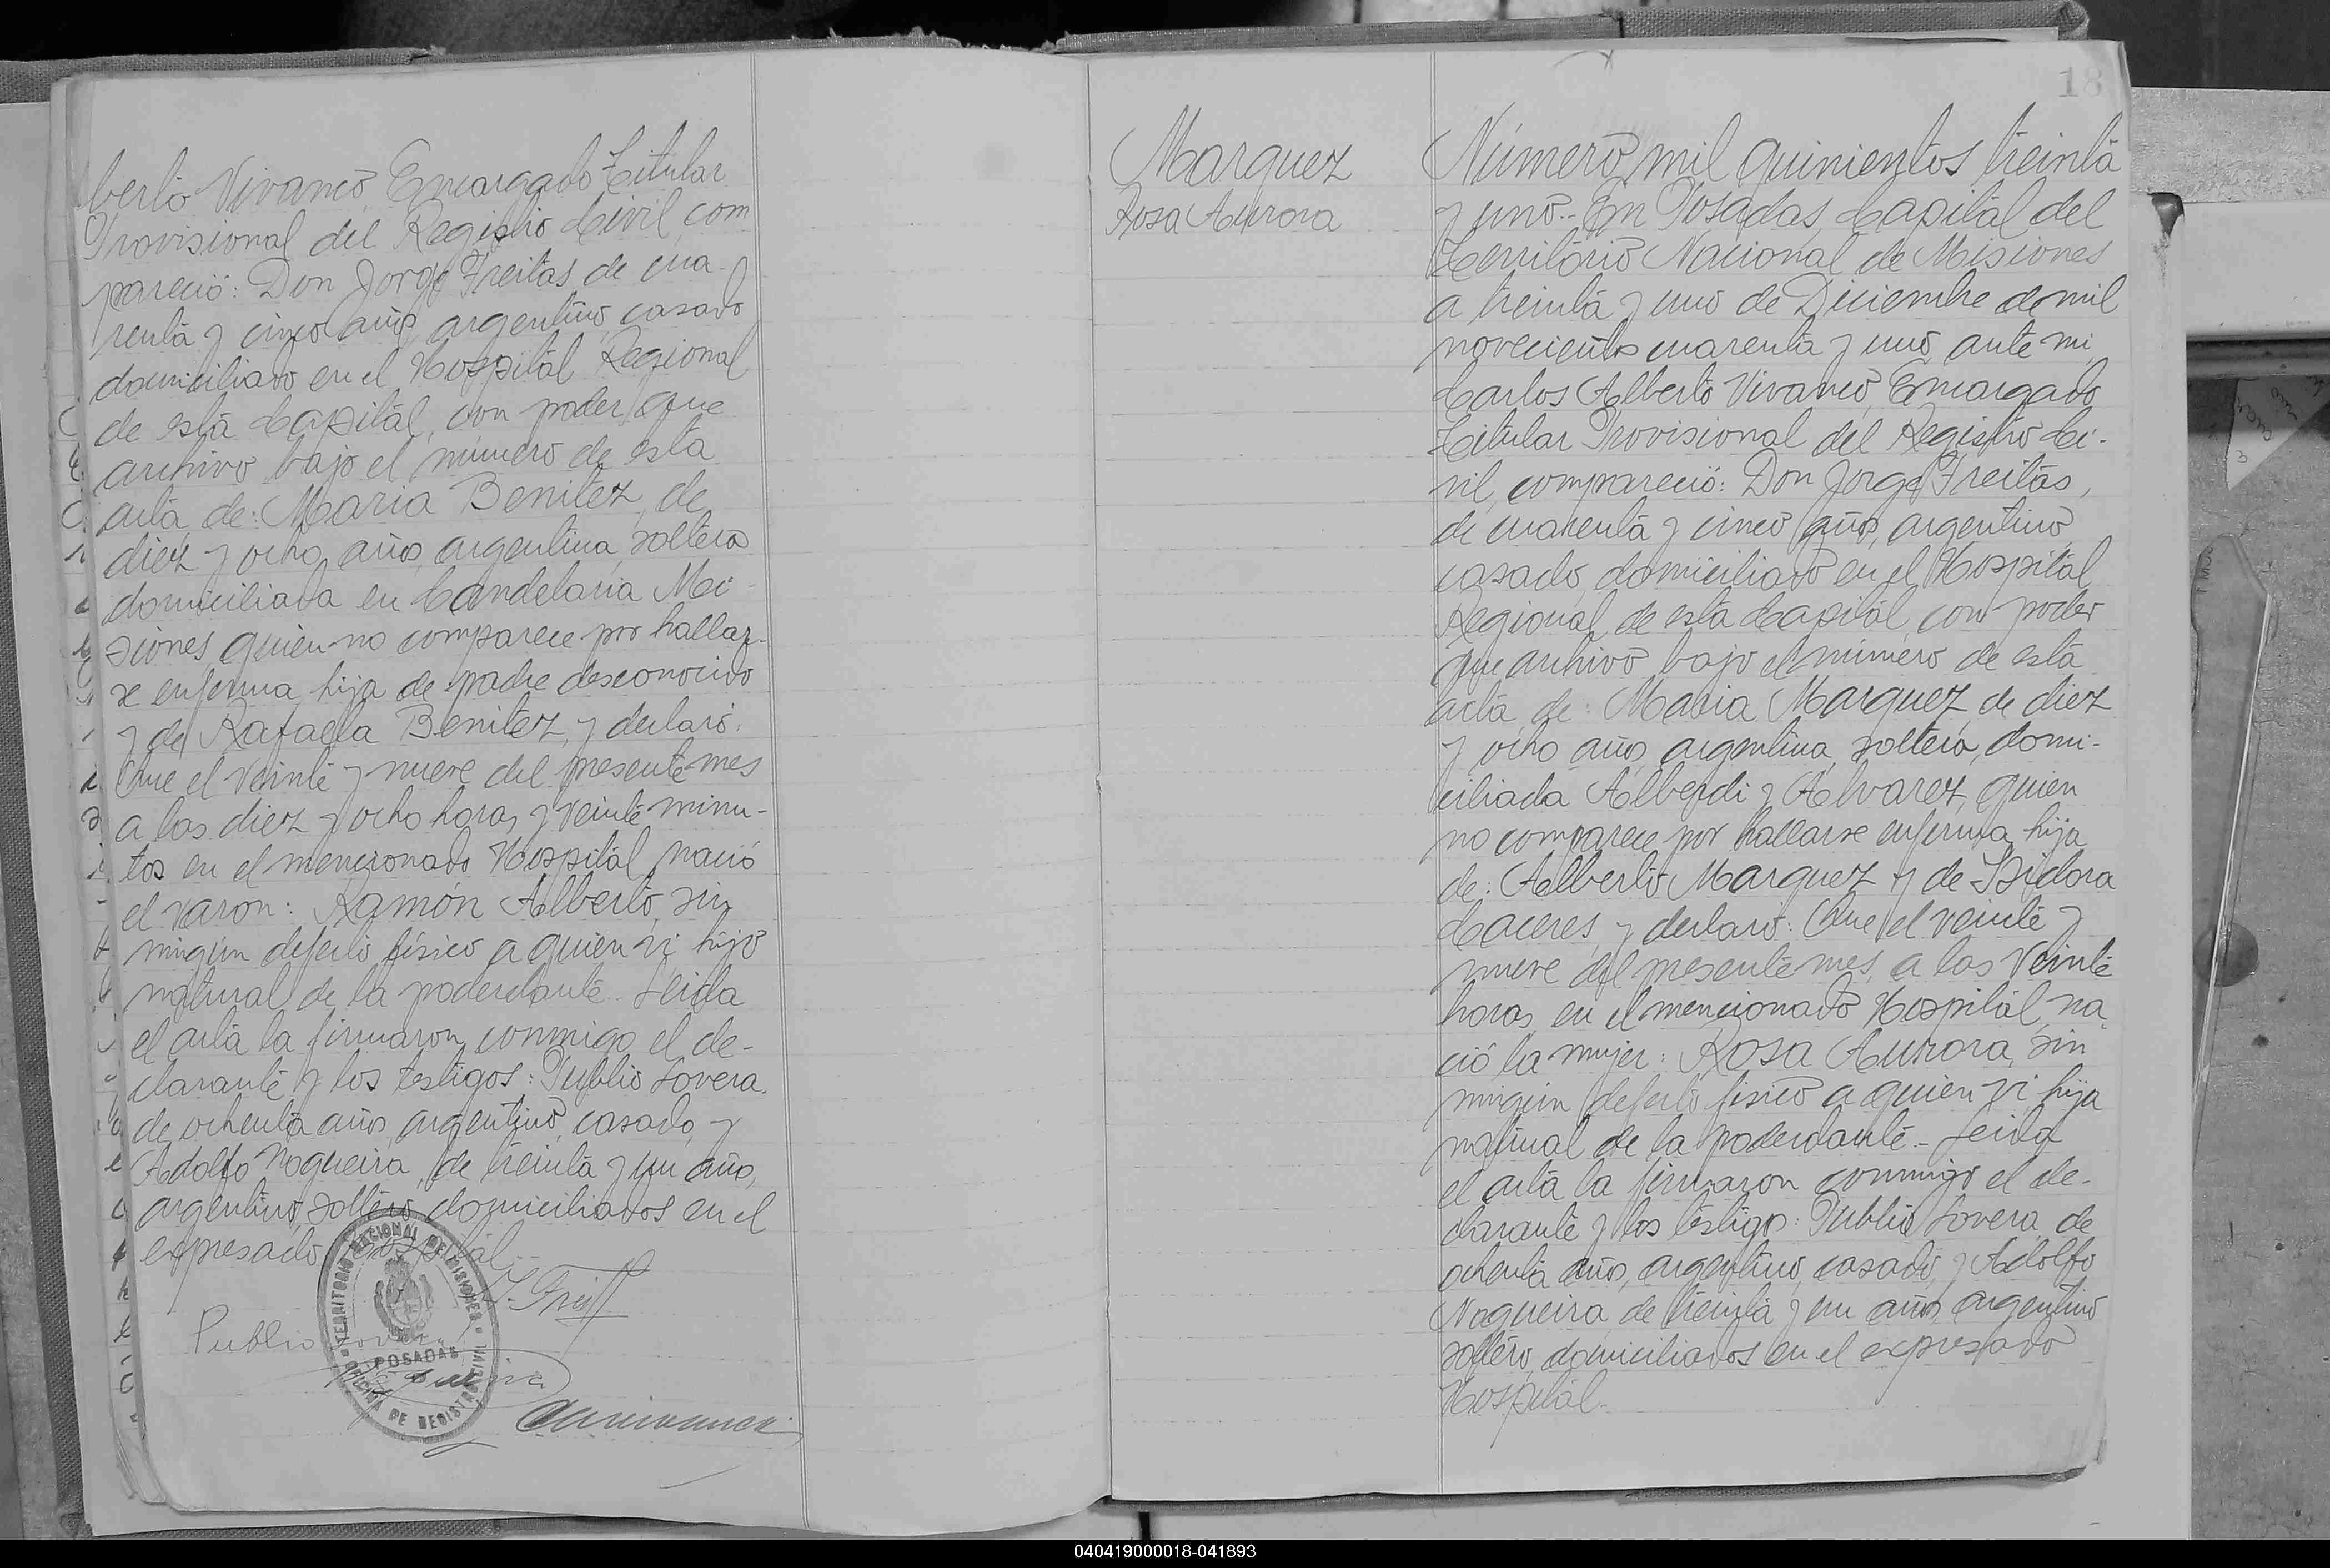 berto Vivanco, Encargado Titular
Provisional del Registro Civil, com
pareció: Don Jorge Freitas de cua-
renta y cinco años, argentino, casado
domiciliado en el Hospital Regional
de esta Capital, con poder que
archivo bajo el número de esta
acta de: Maria Benitez, de
diez y ocho años, argentina, soltera
domiciliada en Candelaria Mi-
siones, quien no comparece por hallar-
se enferma, hija de padre desconocido
y de Rafaela Benitez, y declaró:
Que el veinte y nueve del presente mes
a las diez y ocho horas y veinte minu-
tos en el mencionado Hospital nació
el varon: Ramón Alberto, sin
ningún defecto físico a quien vi hijo
natural de la poderdante. Leida
el acta la firmaron conmigo el de-
clarante y los testigos: Publio Lovera
de ochenta años, argentino, casado, y
Adolfo Nogueira, de treinta y un años,
argentino, soltero, domiciliados en el
expresado Hospital.-
J. Freitt
Publio Lovera
TERRITORIO NACIONAL DE MISIONES
POSADAS
OFICINA DE REGISTRO CIVIL
18
Marquez
Rosa Aurora
Número mil quinientos treinta
y uno.- En Posadas, Capital del
Territorio Nacional de Misiones
a treinta y uno de Diciembre de mil
novecientos cuarenta y uno, ante mi
Carlos Alberto Vivanco, Encargado
Titular Provisional del Registro Ci-
vil, compareció: Don Jorge Freitas,
de cuarenta y cinco años, argentino,
casado, domiciliado en el Hospital
Regional de esta Capital, con poder
que archivo bajo el número de esta
acta de: Maria Marquez, de diez
y ocho años, argentina, soltera, domi-
ciliada Alberdi y Alvarez, quien
no comparece por hallarse enferma, hija
de: Alberto Marquez y de Isidora
Caceres, y declaró: Que el veinte y
nueve del presente mes, a las veinte
horas, en el mencionado Hospital, na-
ció la mujer: Rosa Aurora, sin
ningún defecto físico a quien vi hija
natural de la poderdante.- Leida
el acta la firmaron conmigo el de-
clarante y los testigos: Publio Lovera, de
ochenta años, argentino, casado, y Adolfo
Nogueira, de treinta y un años, argentino
soltero, domiciliados en el expresado
Hospital.-
040419000018-041893